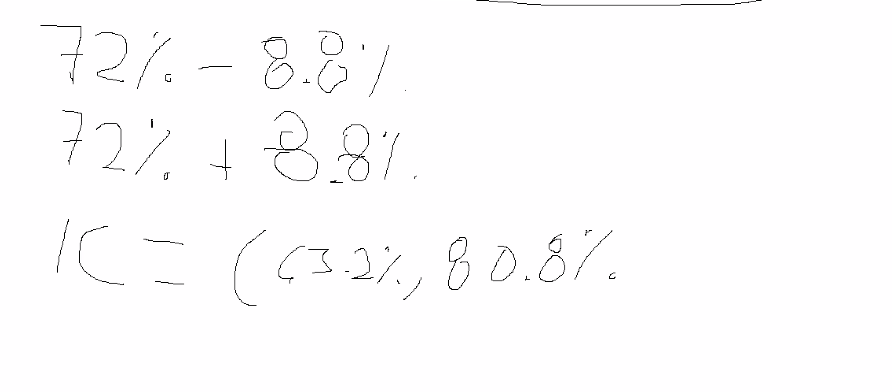 72% - 8.8%
72% + 8.8%
IC = (63.2%, 80.8%